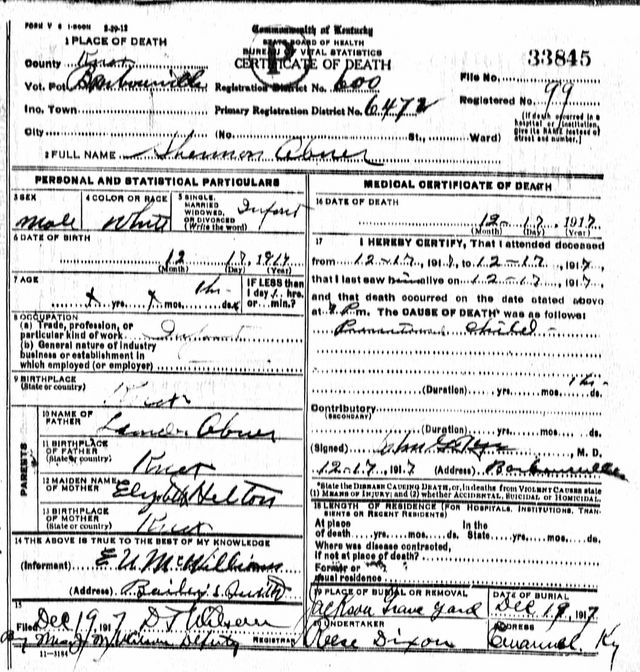 FORM V S 1-500M 2-29-12
Commonwealth of Kentucky
STATE BOARD OF HEALTH
BUREAU OF VITAL STATISTICS
CERTIFICATE OF DEATH
33845
1 PLACE OF DEATH
County Knox
Vot. Pct. Barbourville Registration District No. 600 File No.
Inc. Town Primary Registration District No. 6472 Registered No. 99
City (No. St., Ward)
(If death occurred in a hospital or institution, give its NAME instead of street and number.)
2 FULL NAME Shermon Abner
PERSONAL AND STATISTICAL PARTICULARS
3 SEX Male
4 COLOR OR RACE White
5 SINGLE, MARRIED WIDOWED, OR DIVORCED (Write the word) Infant
6 DATE OF BIRTH
12 17, 1917
(Month) (Day) (Year)
7 AGE
x yrs. x mos. ds. 1 hr.
IF LESS than 1 day, hrs. or min.?
8 OCCUPATION
(a) Trade, profession, or particular kind of work Infant
(b) General nature of industry business or establishment in which employed (or employer)
9 BIRTHPLACE
(State or country) Knox
PARENTS
10 NAME OF FATHER Abner
11 BIRTHPLACE OF FATHER
(State or country) Knox
12 MAIDEN NAME OF MOTHER Helton
13 BIRTHPLACE OF MOTHER
(State or country) Knox
14 THE ABOVE IS TRUE TO THE BEST OF MY KNOWLEDGE
(Informant) E U McWilliams
(Address)
15
Filed Dec 19 1917 D T Wilson
Deputy REGISTRAR
11-3184
MEDICAL CERTIFICATE OF DEATH
16 DATE OF DEATH
12-17, 1917
(Month) (Day) (Year)
17 I HEREBY CERTIFY, That I attended deceased
from 12-17, 1917, to 12-17, 1917,
that I last saw him alive on 12-17, 1917,
and that death occurred on the date stated above
at P.m. The CAUSE OF DEATH* was as follows:
(Duration) yrs. mos. ds. 1 hr
Contributory
(SECONDARY)
(Duration) yrs. mos. ds.
(Signed) , M. D.
12-17, 1917 (Address) Barbourville
*State the DISEASE CAUSING DEATH, or, in deaths from VIOLENT CAUSES state (1) MEANS OF INJURY; and (2) whether ACCIDENTAL, SUICIDAL or HOMICIDAL.
18 LENGTH OF RESIDENCE (FOR HOSPITALS, INSTITUTIONS, TRANSIENTS OR RECENT RESIDENTS)
At place of death yrs. mos. ds. In the State yrs. mos. ds.
Where was disease contracted, if not at place of death?
Former or usual residence
19 PLACE OF BURIAL OR REMOVAL Jackson Grave yard
DATE OF BURIAL Dec 19, 1917
20 UNDERTAKER Reese Dixon
ADDRESS Emanuel Ky